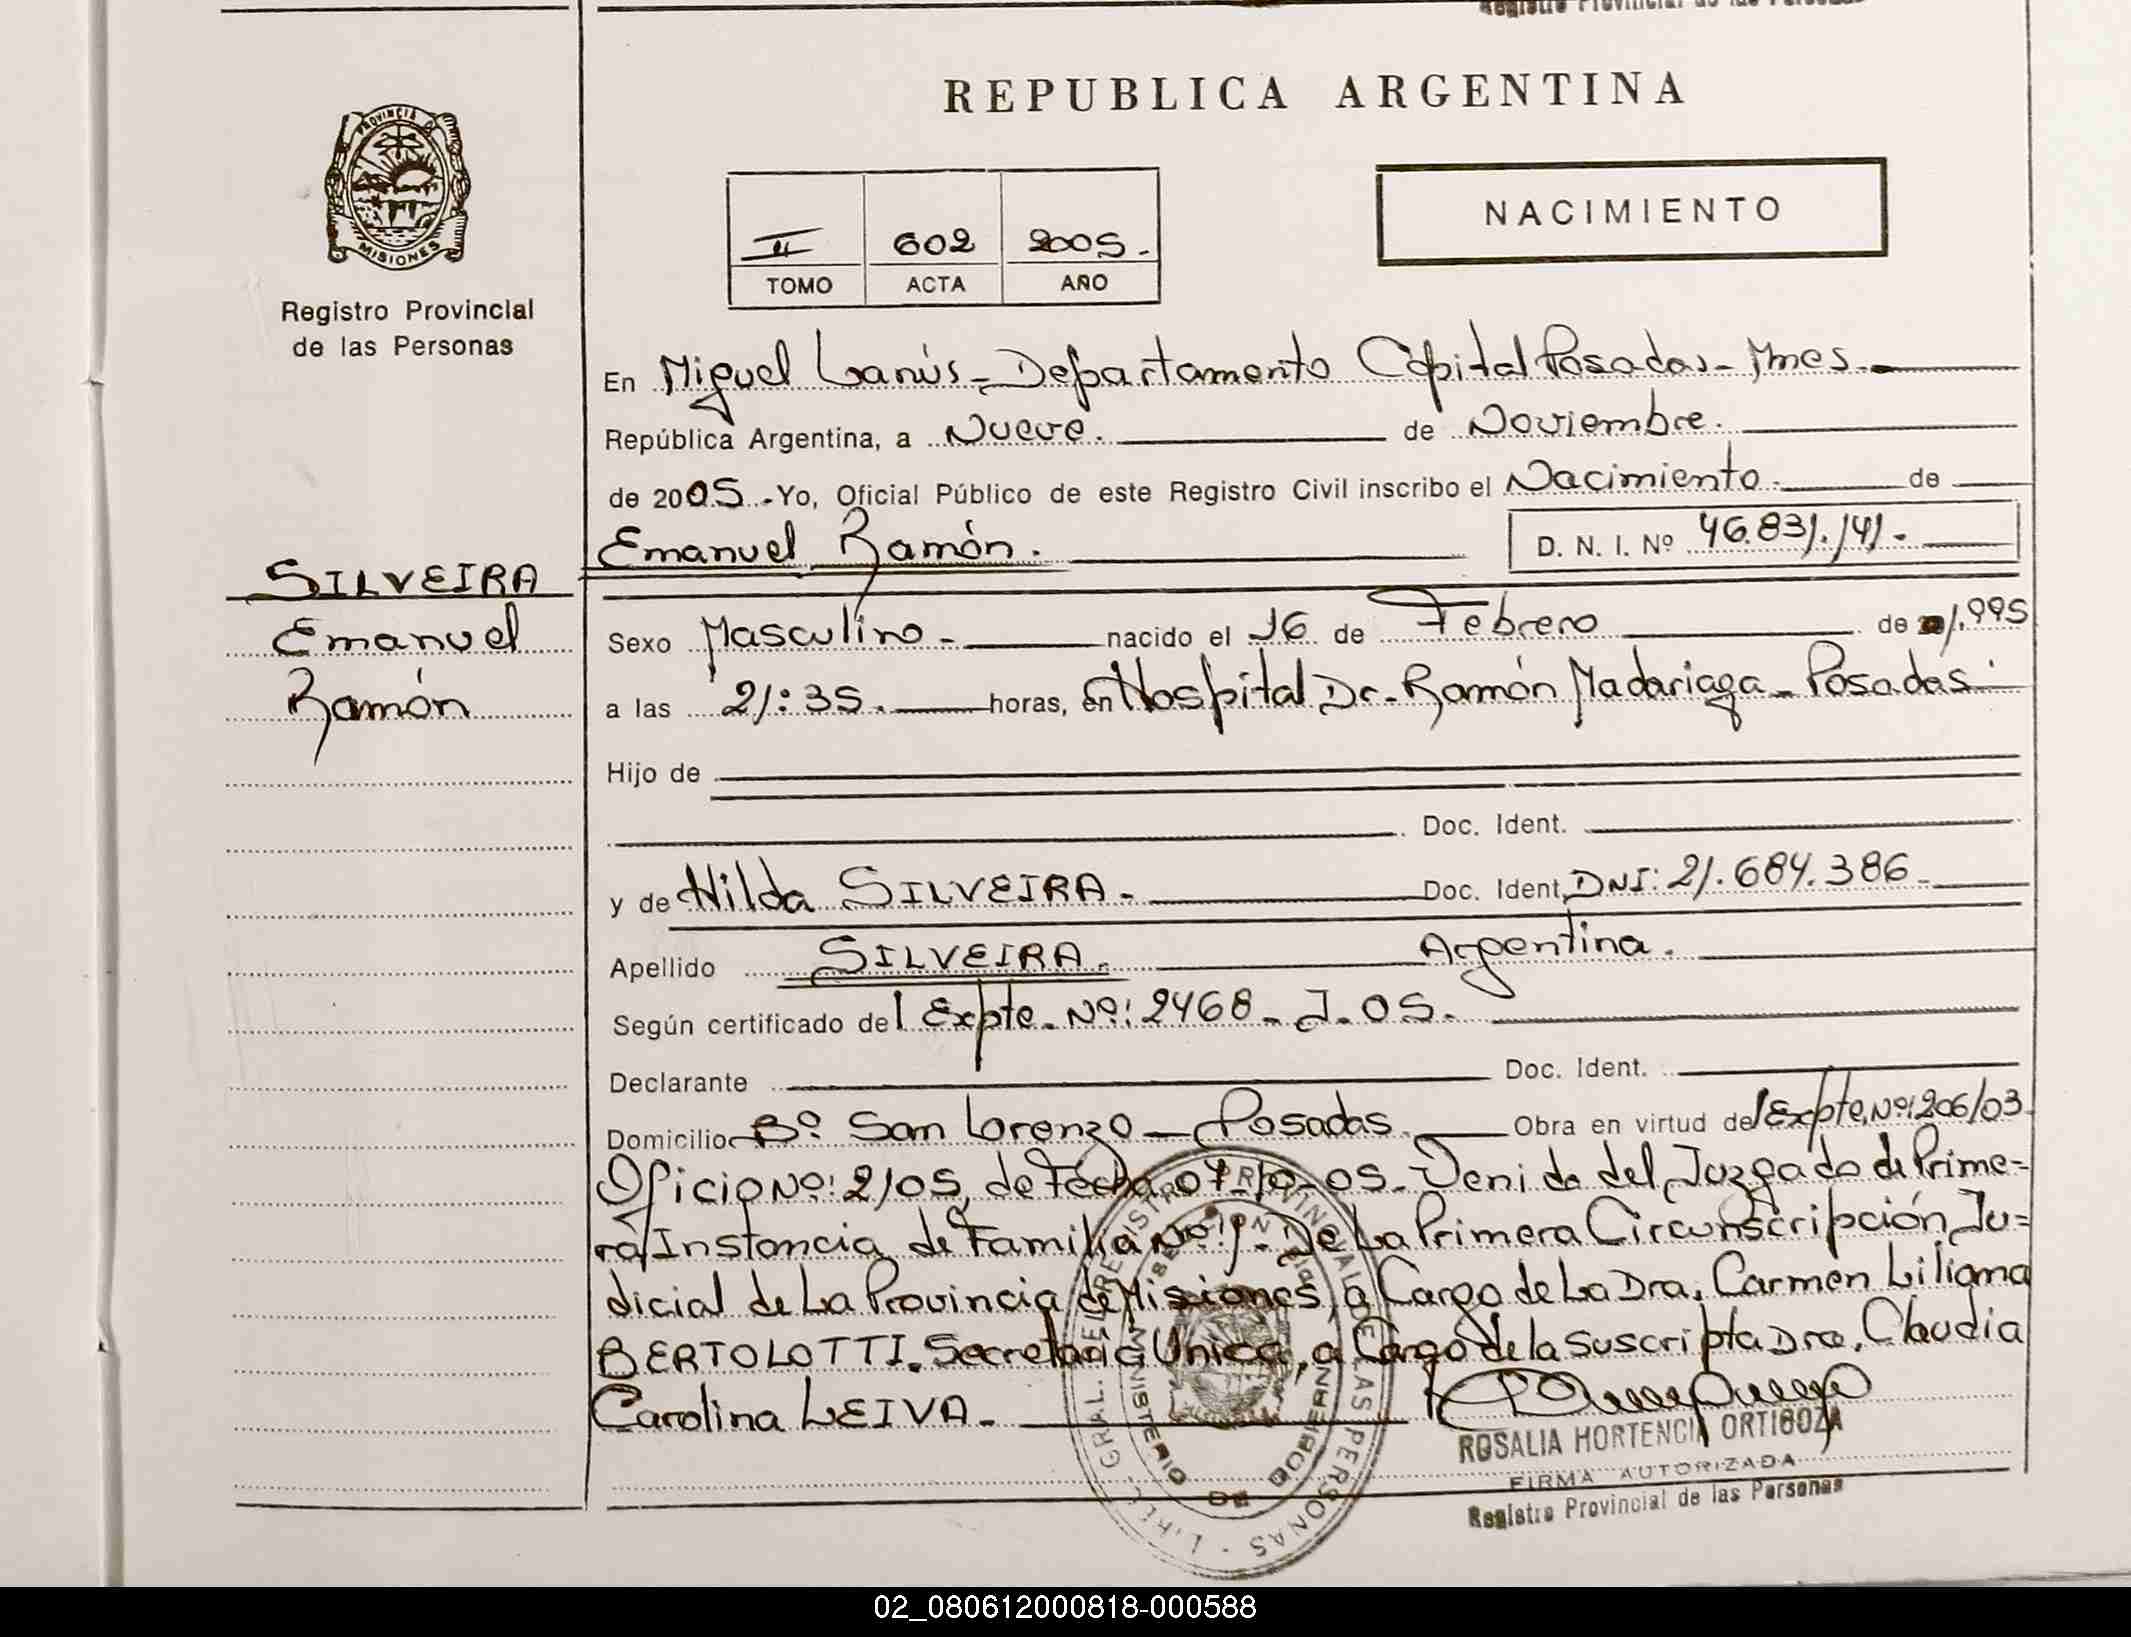 Registro Provincial de las Personas
REPUBLICA ARGENTINA
PROVINCIA DE
MISIONES
Registro Provincial
de las Personas
NACIMIENTO
II 602 2005.
TOMO ACTA AÑO
En Miguel Lanús - Departamento Capital Posadas - Mnes. -
República Argentina, a Nueve. de Noviembre.
de 2005.- Yo, Oficial Público de este Registro Civil inscribo el Nacimiento. de
Emanuel Ramón. D. N. I. Nº 46.831.141.-
SILVEIRA
Emanuel
Ramón
Sexo Masculino - nacido el 16 de Febrero de 1.995
a las 21:35. horas, en Hospital Dr. Ramón Madariaga - Posadas.
Hijo de
Doc. Ident.
y de Hilda SILVEIRA. - Doc. Ident. DNI: 21.684.386 -
Apellido SILVEIRA. Argentina.
Según certificado del Expte. Nº: 2468 - J - 05.
Declarante Doc. Ident.
Domicilio Bº San Lorenzo - Posadas. Obra en virtud del Expte. Nº: 206/03
Oficio Nº: 2105, de Fecha 07-10-05. Venido del Juzgado de Prime=
ra Instancia de Familia Nº 1. De La Primera Circunscripción Ju=
dicial de La Provincia de Misiones, a Cargo de La Dra. Carmen Liliana
BERTOLOTTI. Secretaria Unica, a Cargo de la suscripta Dra. Claudia
Carolina LEIVA. -
ROSALIA HORTENCIA ORTIGOZA
FIRMA AUTORIZADA
Registro Provincial de las Personas
MINISTERIO DE GOBIERNO
02_080612000818-000588